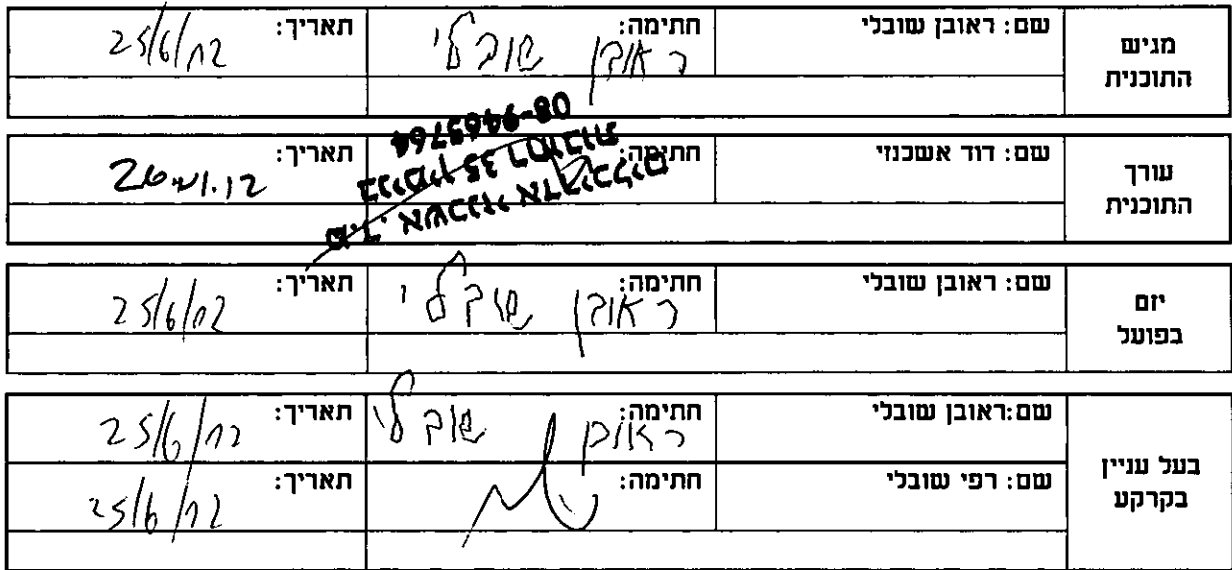 מגיש התוכנית שם: ראובן שובלי חתימה: ראובן שובלי תאריך: 25/6/12
עורך התוכנית שם: דוד אשכנזי חתימה: תאריך:
אשכנזי אדריכלים
בנימין 35 רחובות
08-9469764
יזם בפועל שם: ראובן שובלי חתימה: ראובן שובלי תאריך: 25/6/12
בעל עניין בקרקע שם:ראובן שובלי חתימה: ראובן שובלי תאריך: 25/6/12
שם: רפי שובלי חתימה: תאריך: 25/6/12